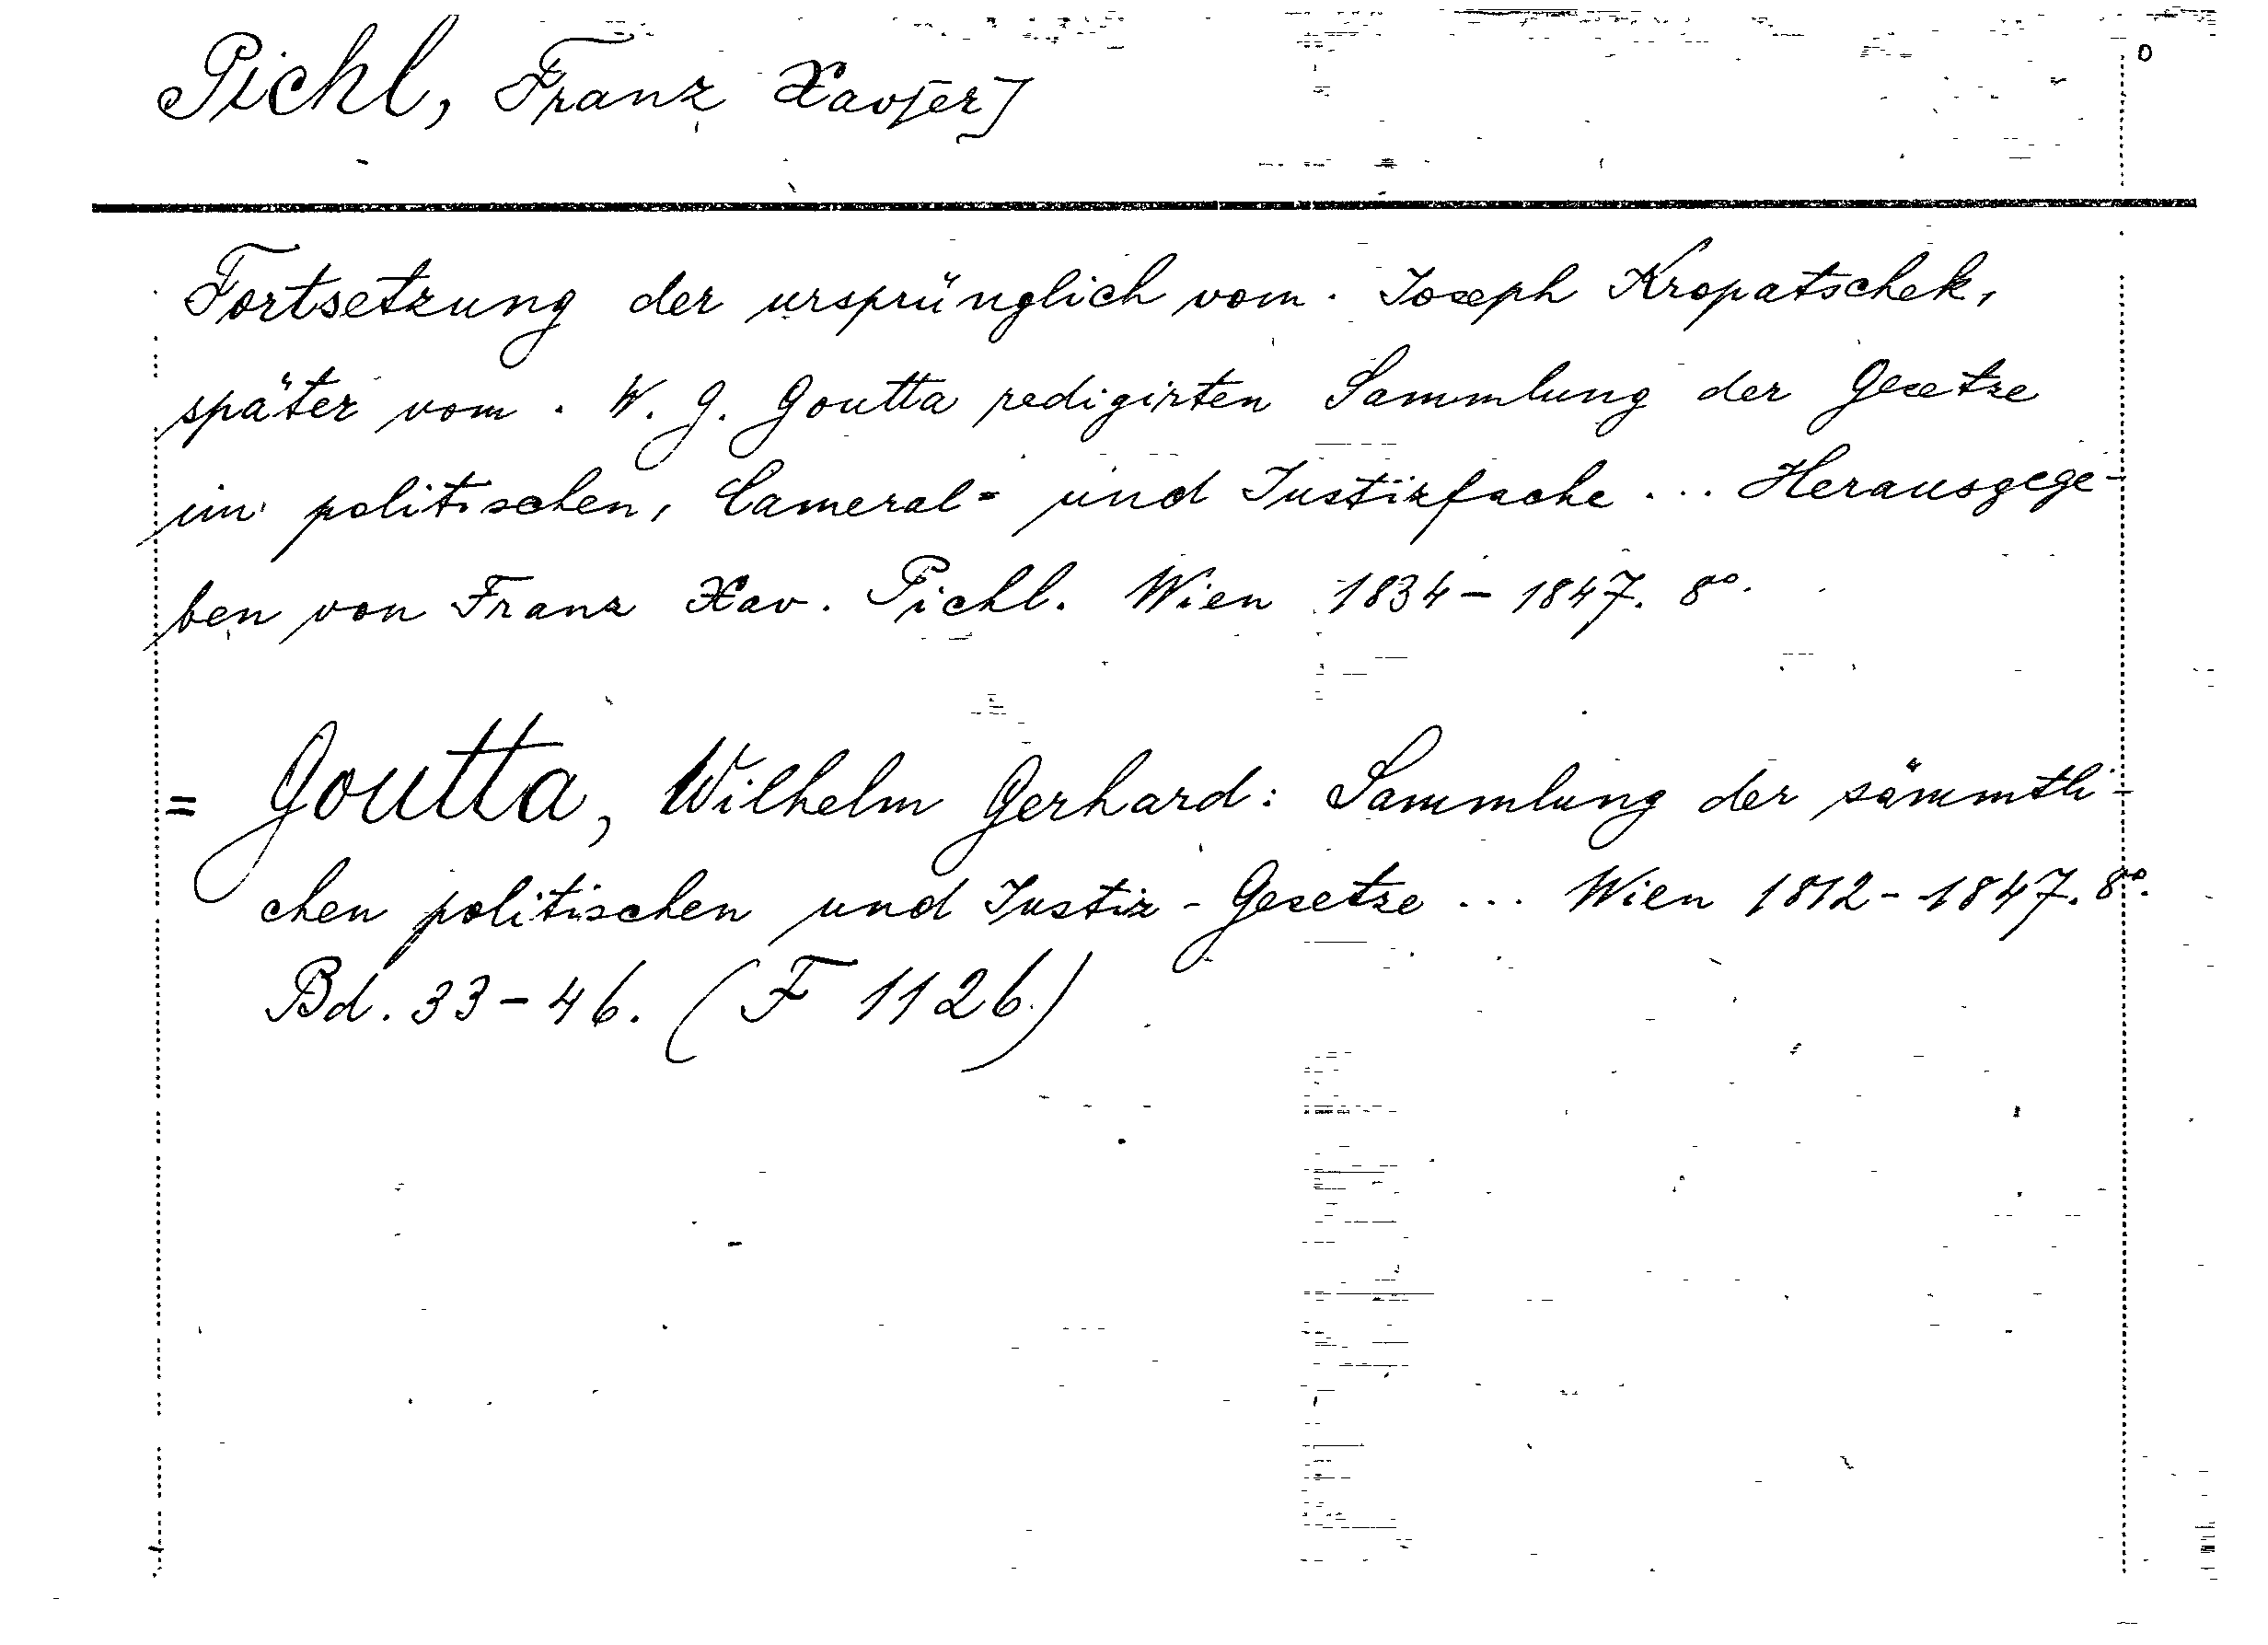 Pichl, Franz Xav[er]
Fortsetzung der ursprünglich vom. Joseph Kropatschek,
später vom. W. G. Goutta redigirten Sammlung der Gesetze
im politischen, Cameral= und Justizfache ... Herausgege-
ben von Franz Xav. Pichl. Wien 1834-1847. 8°.
= Goutta, Wilhelm Gerhard: Sammlung der sämmtli-
chen politischen und Justiz-Gesetze ... Wien 1812-1847. 8°.
Bd. 33-46. (F 1126.)